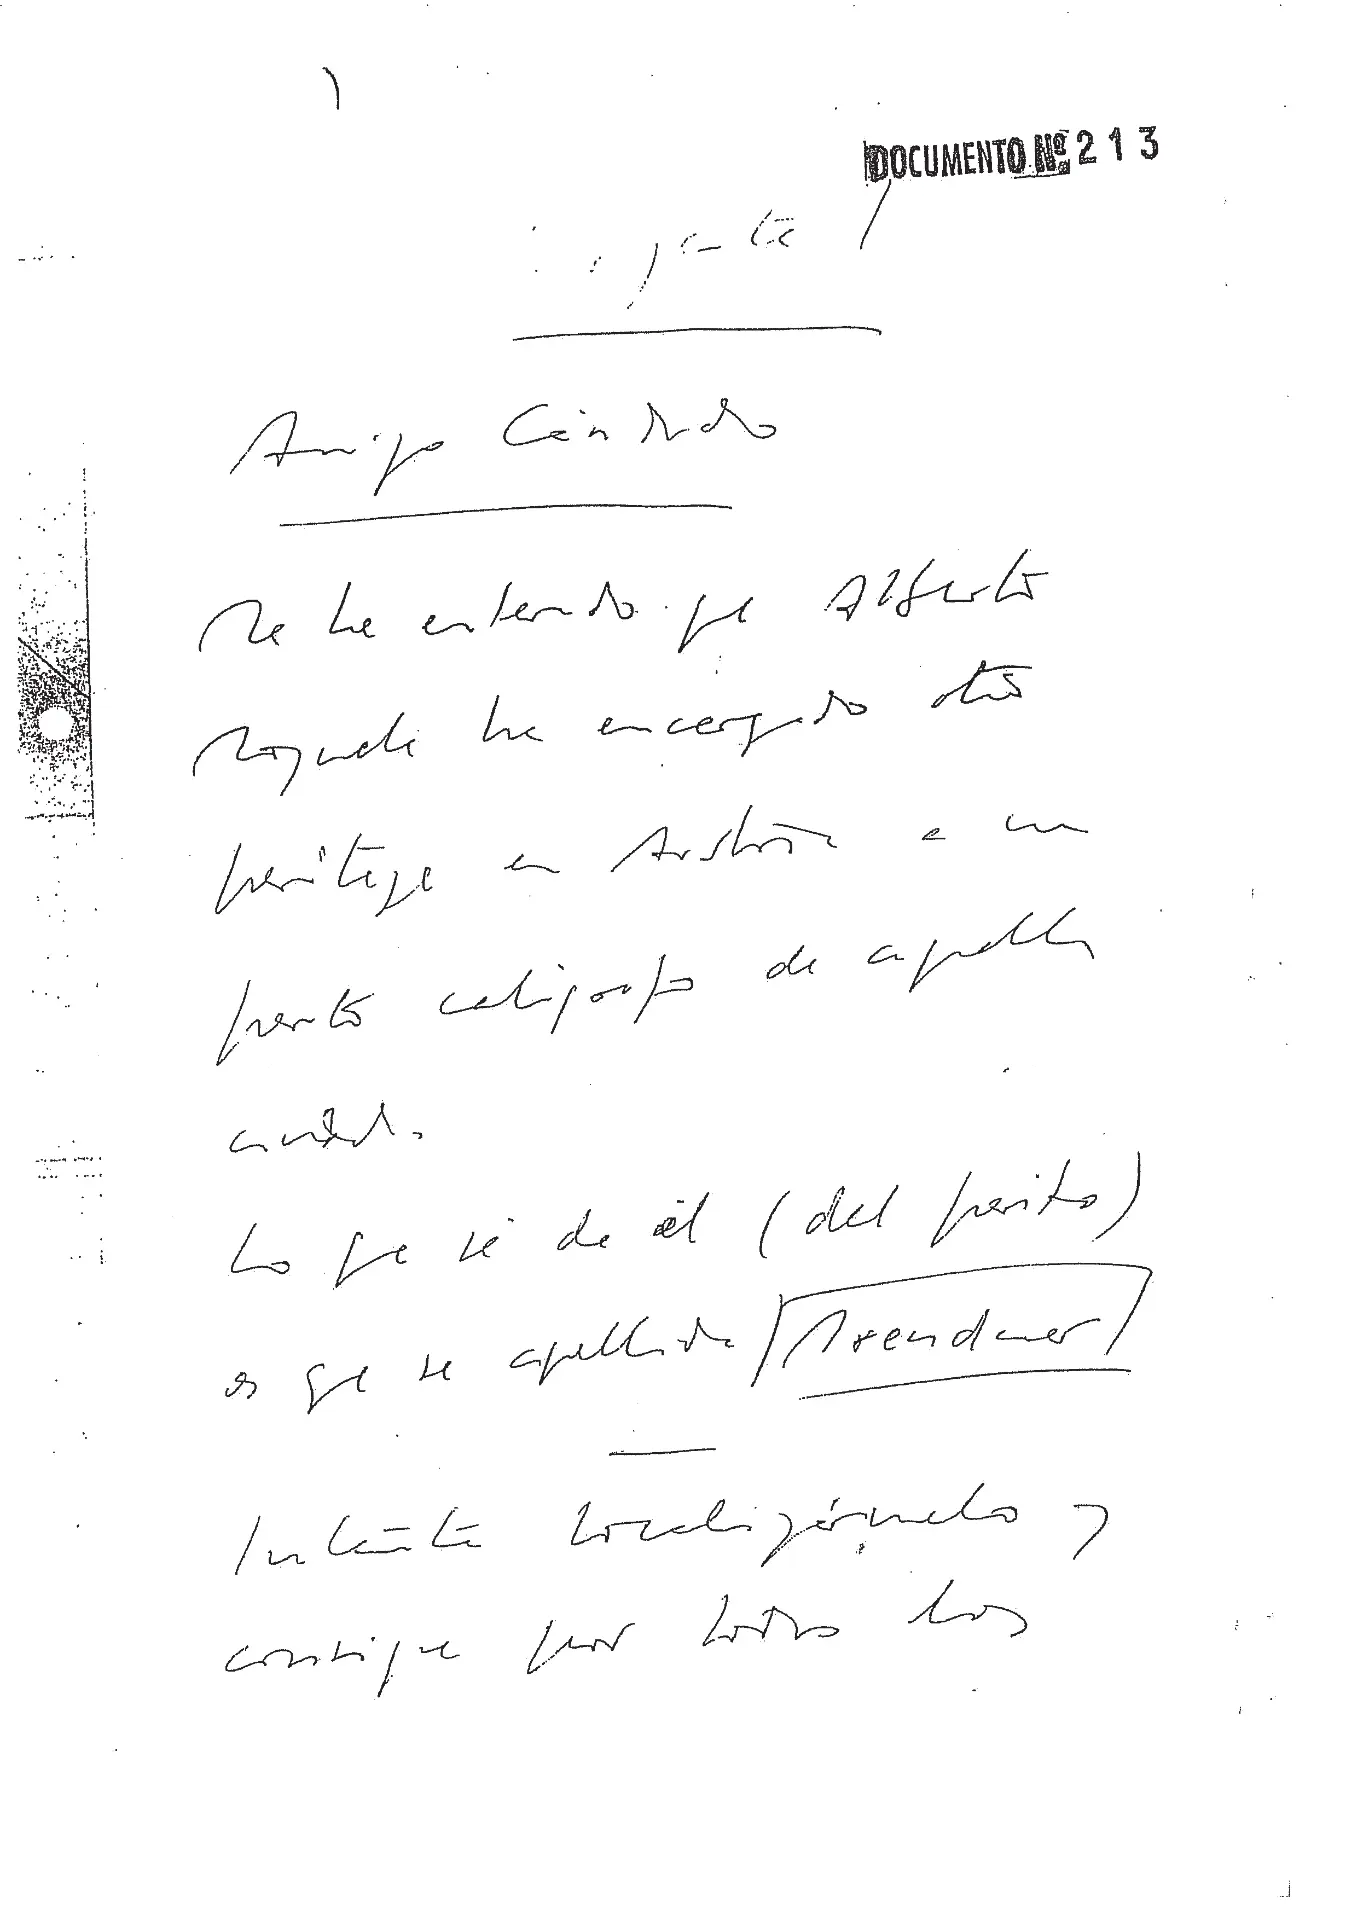 DOCUMENTO Nº 213
Amigo Cándido
Me he enterado que Alberto
ha encargado otro
peritaje en Austria a un
perito calígrafo de aquella
ciudad.
Lo que sé de él (del perito)
es que se apellida
Intente localizármelo y
consiga por todos los